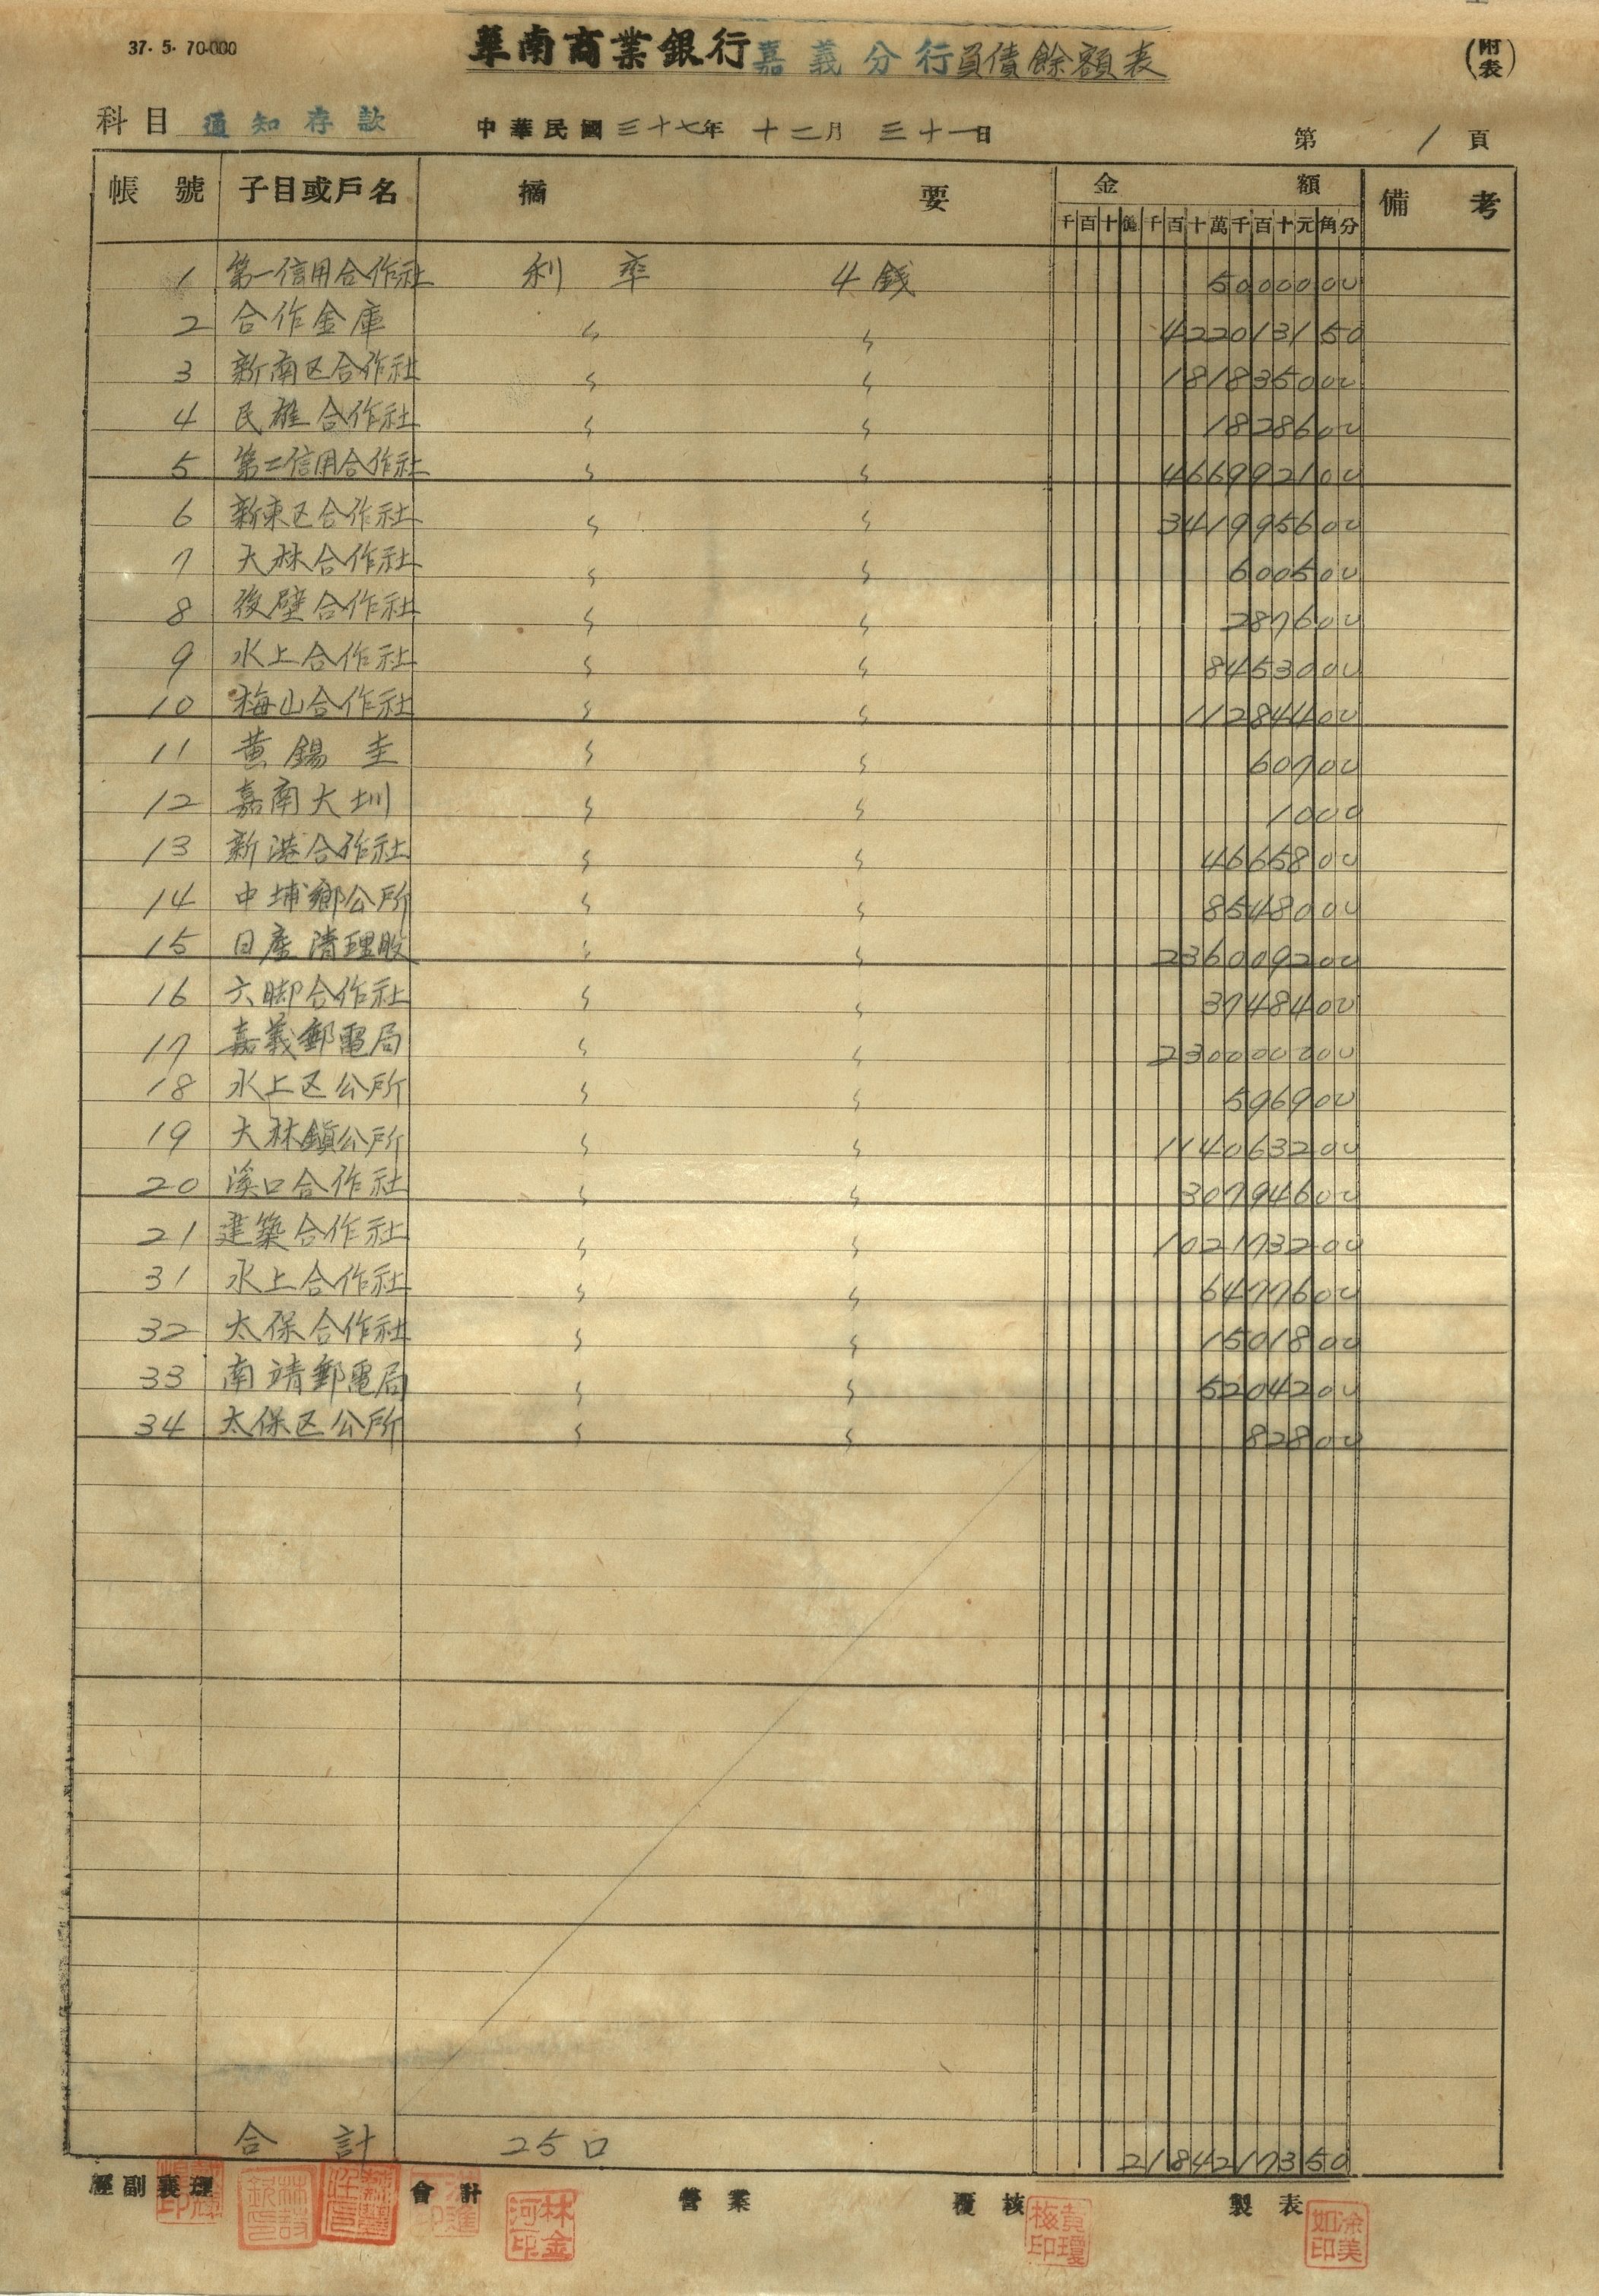 37. 5. 70.000
華南商業銀行嘉義分行負債餘額表
(附表)
科目 通知存款 中華民國三十七年 十二月 三十一日 第 1 頁
帳號 子目或戶名 摘要 金額 備考
千百十億千百十萬千百十元角分
1 第一信用合作社 利率 4錢 50000.00
2 合作金庫 〃 〃 4220131.50
3 新南区合作社 〃 〃 1818350.00
4 民雄合作社 〃 〃 18286.00
5 第二信用合作社 〃 〃 4669921.00
6 新東区合作社 〃 〃 3419956.00
7 大林合作社 〃 〃 6005.00
8 後壁合作社 〃 〃 2876.00
9 水上合作社 〃 〃 84530.00
10 梅山合作社 〃 〃 112844.00
11 黃錫圭 〃 〃 607.00
12 嘉南大圳 〃 〃 10.00
13 新港合作社 〃 〃 46658.00
14 中埔鄉公所 〃 〃 85480.00
15 日產清理股 〃 〃 2360092.00
16 六脚合作社 〃 〃 37484.00
17 嘉義郵電局 〃 〃 2300000.00
18 水上区公所 〃 〃 5969.00
19 大林鎮公所 〃 〃 1140632.00
20 溪口合作社 〃 〃 307946.00
21 建築合作社 〃 〃 1021732.00
31 水上合作社 〃 〃 64776.00
32 太保合作社 〃 〃 15018.00
33 南靖郵電局 〃 〃 52042.00
34 太保区公所 〃 〃 828.00
合計 25口 21842173.50
經副襄理 會計 營業 覆核 製表
林金河印 黃瓊梅印 涂美如印